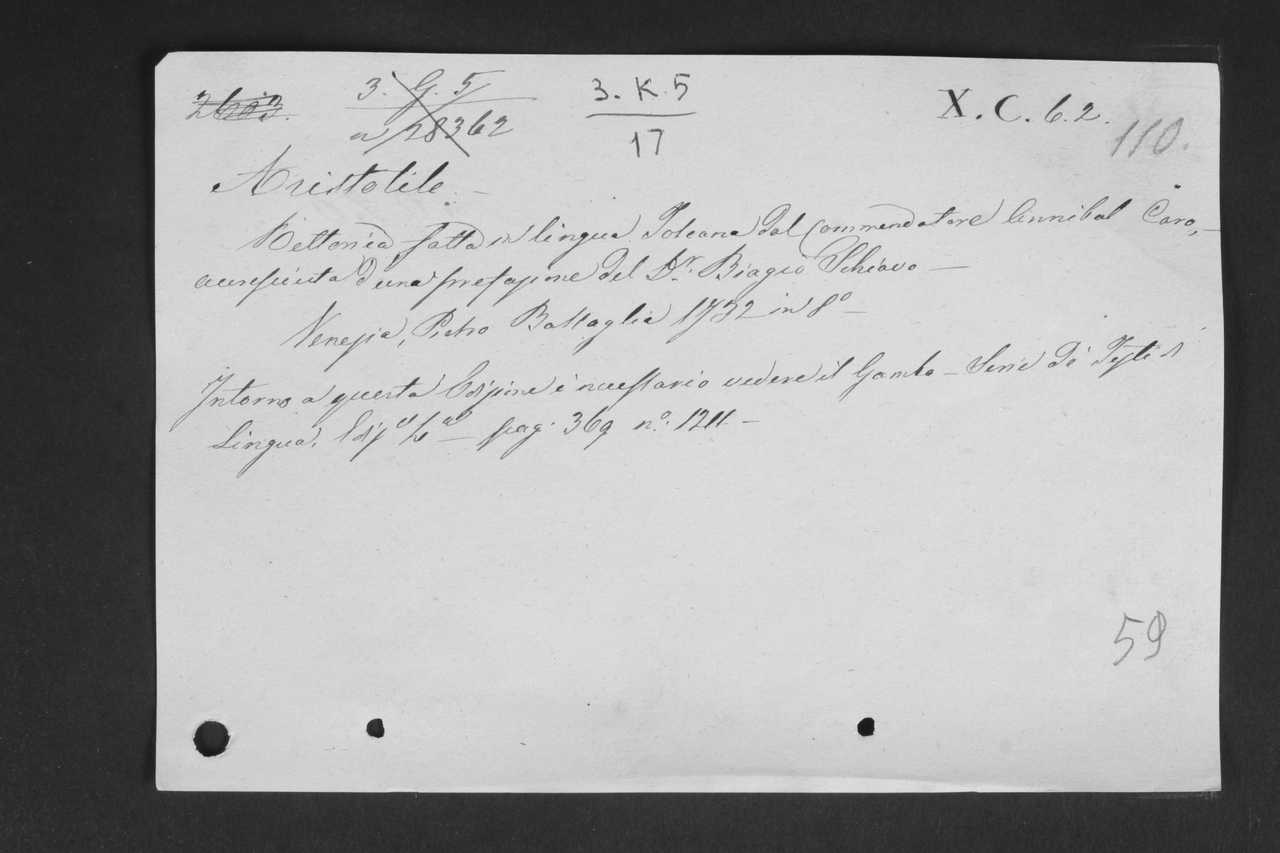 3. G. 5
a 28362
3. K. 5
17
X. C. 6. 2.
110.
Aristotile. –
Rettorica fatta in lingua Toscana dal Commendatore Annibal Caro, –
accresciuta d'una prefazione del Dr. Biagio Schiavo –
Venezia, Pietro Battaglia 1732 in 8º –
Intorno a questa Edizione è necessario vedere il Gamba – Serie di Testi di
Lingua. pag. 369 nº. 1211 –
59